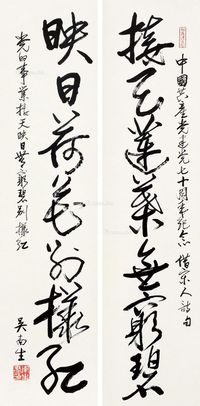 中國共產黨建黨七十周年紀念 借宋人詩句
接天蓮葉無窮碧
映日荷花別樣紅
光的事業接天映日無窮碧別樣紅
吳南生